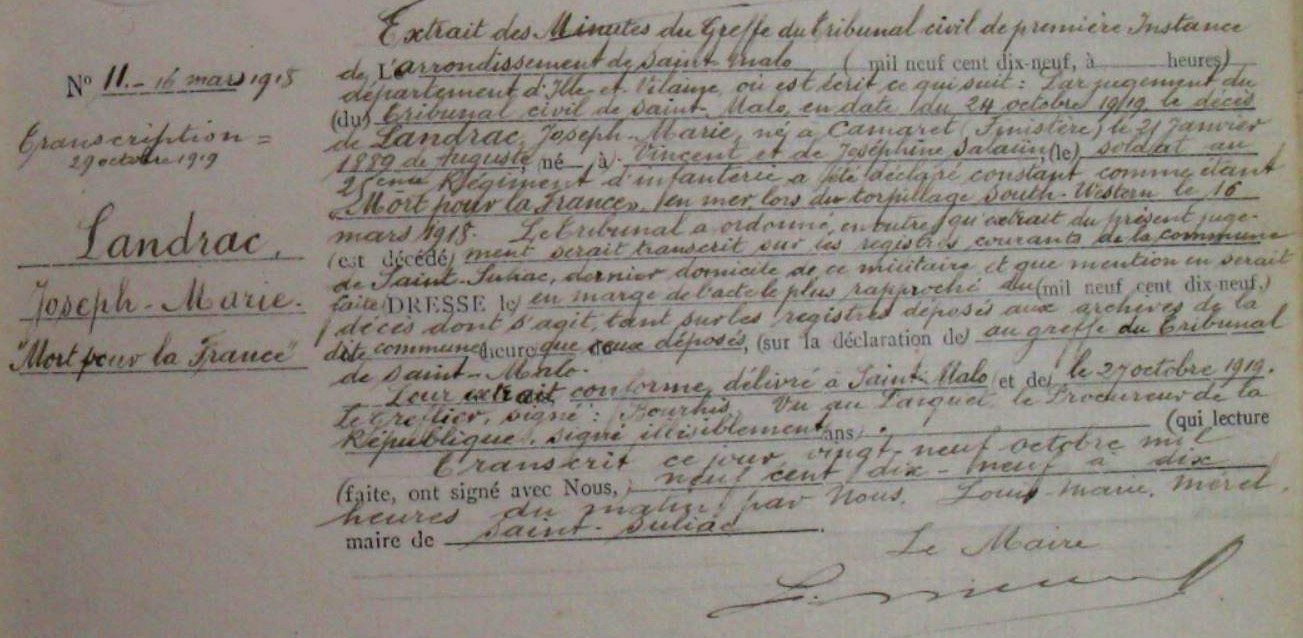 N° 11. - 16 mars 1918
Transcription =
29 octobre 1919
Landrac,
Joseph-Marie.
"Mort pour la France"
Extrait des Minutes du Greffe du Tribunal civil de première Instance
de L'arrondissement de Saint Malo ( mil neuf cent dix-neuf, à heures)
département d'Ille-et-Vilaine, où est écrit ce qui suit : Par jugement du
(du) Tribunal civil de Saint-Malo, en date du 24 octobre 1919 le décès
de Landrac, Joseph-Marie, né à Camaret (Finistère) le 21 Janvier
1889 de Auguste, né à Vincent et de Joséphine Salaün, (le) soldat au
25ème Régiment d'infanterie a été déclaré constant comme étant
"Mort pour la France", en mer lors du torpillage South-Western le 16
mars 1918. Le tribunal a ordonné, en outre, qu'extrait du présent juge-
(est décédé) ment serait transcrit sur les registres courants de la commune
de Saint-Suliac, dernier domicile de ce militaire et que mention en serait
faite (DRESSE le) en marge de l'acte le plus rapproché du (mil neuf cent dix-neuf,)
décès dont s'agit, tant sur les registres déposés aux archives de la
dite commune heure que ceux déposés, (sur la déclaration de) au greffe du Tribunal
de Saint-Malo.
Pour extrait conforme délivré à Saint-Malo et de le 27 octobre 1919.
Le Greffier, signé : Bourhis. Vu au Parquet le Procureur de la
République, signé illisiblement ans (qui lecture
Transcrit ce jour vingt-neuf octobre mil
(faite, ont signé avec Nous, neuf cent dix-neuf à dix
heures du matin, par Nous, Louis-Marie, Mérel,
maire de Saint-Suliac.
Le Maire